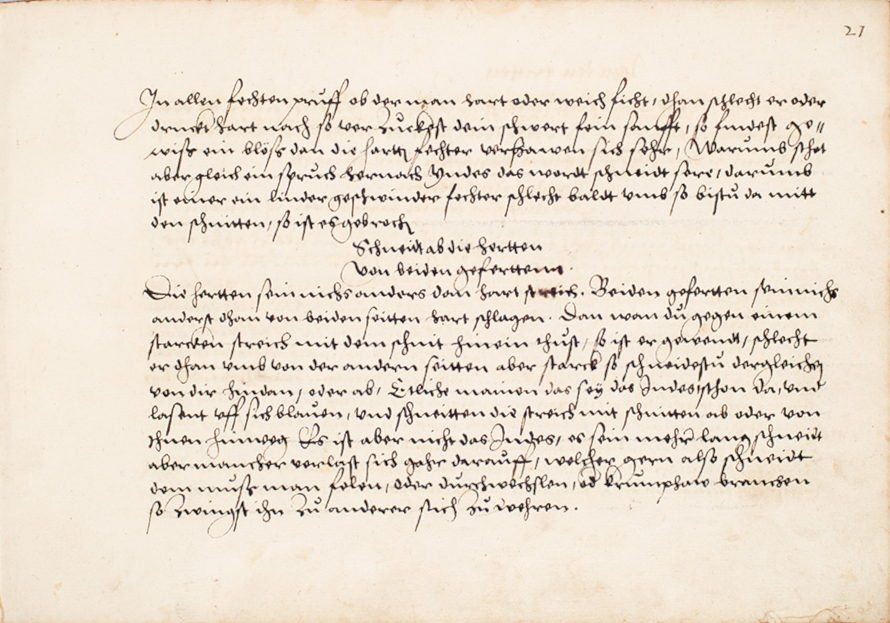 21
In allen fechten prüff ob der man hart oder weich ficht, dhan schlecht er oder
druckt hart nach so verzuckest dein schwert fein sanfft, so findest ge=
wiss ein blöss dan die hertten fechter verhawen sich sehr, Warumb schet
aber gleich ein spruch hernach Yndes das wordt schneidt sere, darumb
ist einer ein linder geschwinder fechter schlecht baldt umb so bistu da mitt
den schnitten, so ist es gebroch
Schneidt ab die hertten
von beiden geferttenn.
Die hertten sein nichs anders dan hart streich. Beiden gefertten sein nichs
anderst dhan von beiden seitten hart schlagen. Dan wan du gegen einem
starcken streich mit dem schnit hinein thust, so ist er gewendt, schlecht
er dhan umb von der andern seitten aber starck so schneidestu dergleichen
von dir hindan, oder ab, Etliche mainen das sey das Indes schon da, und
lasent uff sich blauen, und schneitten die streich mit schnitten ab oder von
ihnen hinweg Es ist aber nicht das Indes, es sein mehr lang schneidt
aber mancher verlast sich gahr darauff, welcher gern also schneidt
dem muss man felen, oder durchwechslen, od krumphaw brauchen
so zwingst ihn zu anderer stich zu wehren.